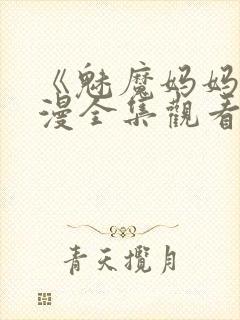 《魅魔妈妈
漫全集觀看
青天攬月